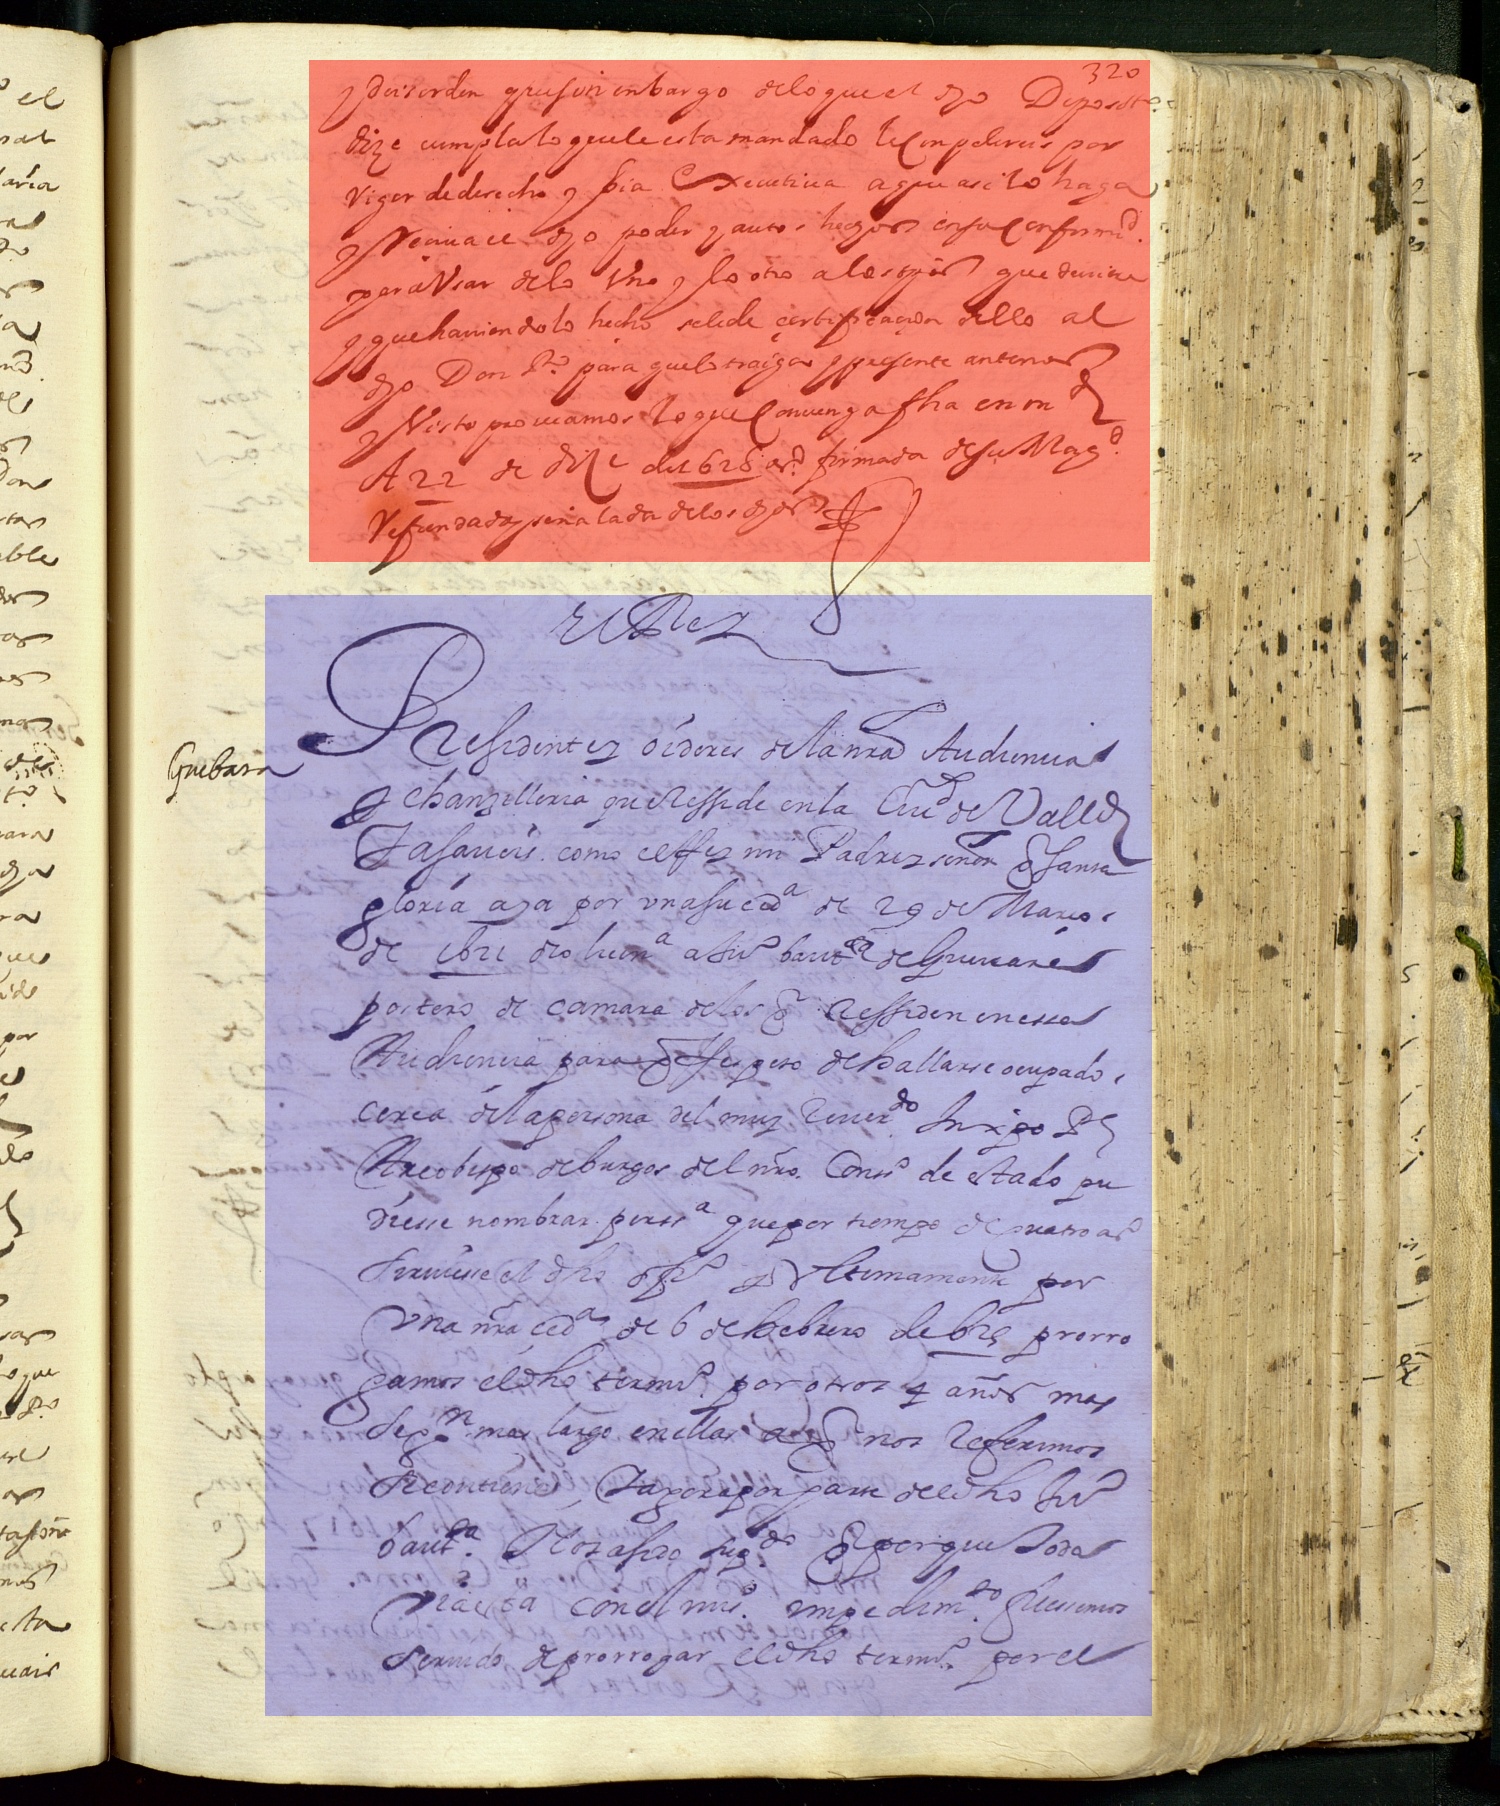 320
y deis orden que sin enbargo de lo que el dho Deposito
dize cumpla lo que le esta mandado le conpelereis por
vigor de derecho y bia executiua a que asi lo haga
y Reciua el dho poder y autos hechos en su conformd.
para Vsar de lo Vno y lo otro a los que
y que hauiendolo hecho se le de çertificaçion dello al
dho Don Po. para que lo traiga y presente ante nos
y Visto proueamos lo que Conuenga fha en m
A 22 de diçe de 1625 as. firmada de su Magd.
Refrendada y señalada de los dhos
El Rey
Guebara
Presidente y oidores de la nra Audiencia
y chanzilleria que Resside en la Ciud de Valld
Ya saueis como el Rey mi Padre y señor q santa
gloria aya por vna su ceda de 29 de Março
de 1621 dio licena a Ju bauta de Gueuara
portero de camara de los q Ressiden en essa
Audiencia para q Respeto de hallarse ocupado
cerca de la persona del muy Reuerdo In xpo Pe
Arcobispo de burgos del nro. Cons de estado pu
diesse nombrar perssa que por tiempo de quatro as
siruiesse el dho offo y Vltimamente por
vna nra ceda de 6 de hebrero de 625 prorro
gamos el dho termo por otros 4 años mas
segn mas largo en ellas a q nos Referimos
se contiene, Y agora por parte del dho Ju
bauta. Nos a sido supdo q porque toda
via esta con el mismo. impedimto. fuessemos
seruido de prorrogar el dho termo. por el